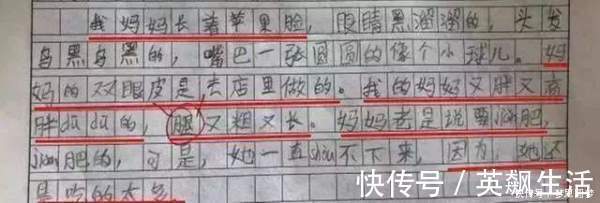 我妈妈长着苹果脸，眼睛黑溜溜的，头发
乌黑乌黑的，嘴巴一张圆圆的像个小球儿。妈
妈的双眼皮是去店里做的。我的妈妈又胖又高
胖dūdū的，腿又粗又长。妈妈老是说要jiǎn肥，
jiǎn肥的，可是，她一直shòu不下来，因为，她还
是吃的太多
快传号／英飙生活